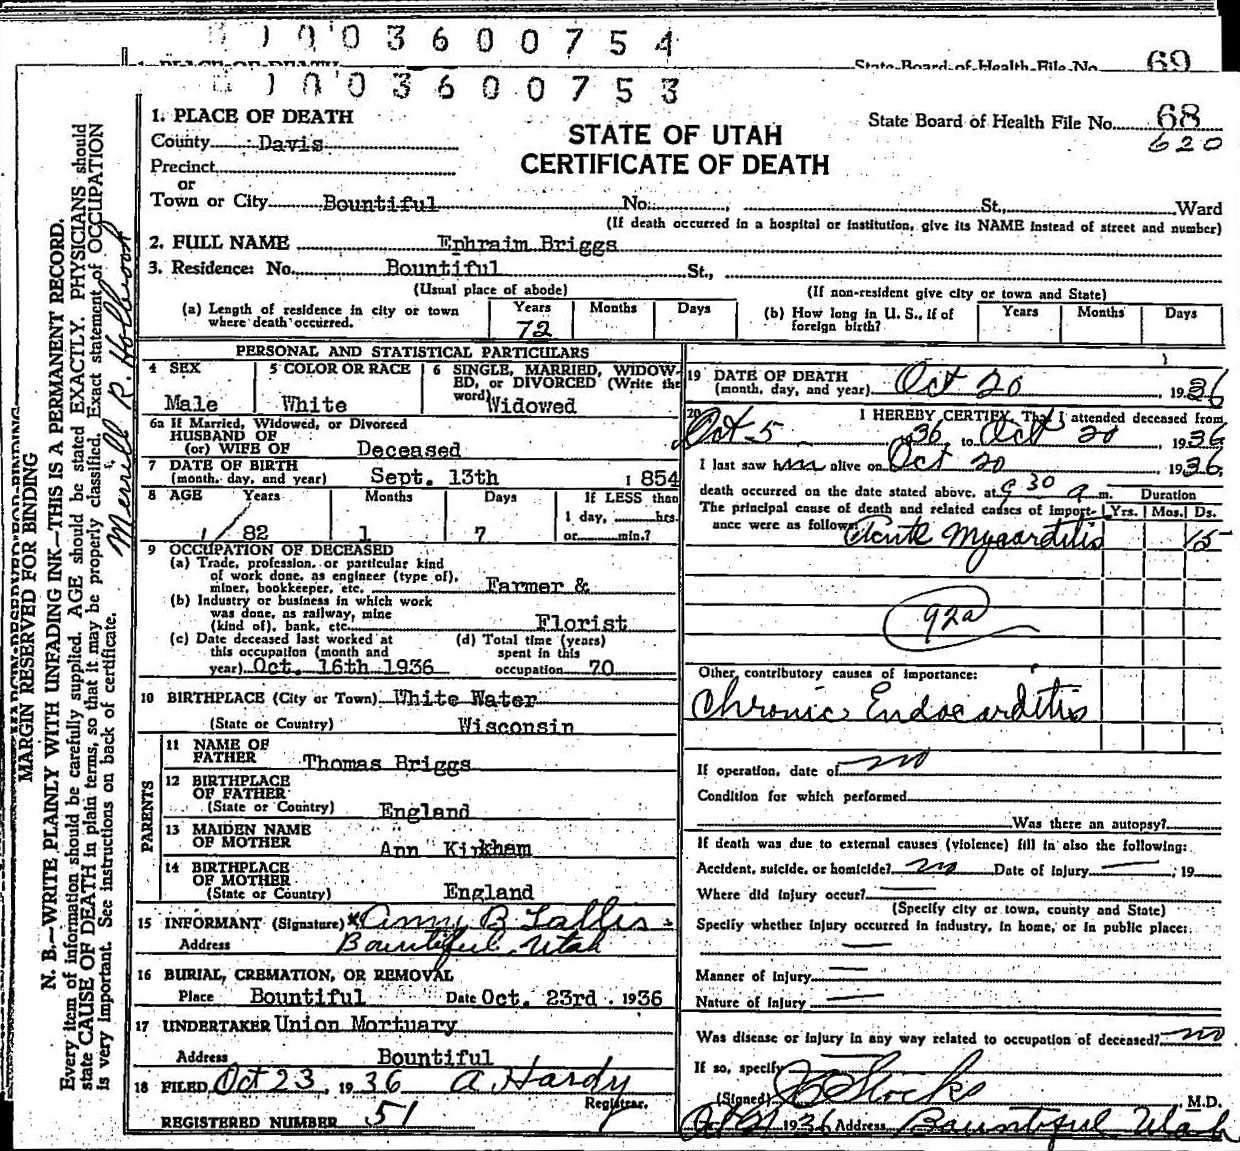 0 3 6 0 0 7 5 4
1. PLACE OF DEATH State Board of Health File No. 69
0 3 6 0 0 7 5 3
1. PLACE OF DEATH
County Davis
Precinct
or
Town or City Bountiful No. St., Ward
STATE OF UTAH
CERTIFICATE OF DEATH
State Board of Health File No. 68
620
(If death occurred in a hospital or institution, give its NAME instead of street and number)
2. FULL NAME Ephraim Briggs
3. Residence: No. Bountiful St.,
(Usual place of abode) (If non-resident give city or town and State)
(a) Length of residence in city or town where death occurred. Years 72 Months Days
(b) How long in U. S., if of foreign birth? Years Months Days
PERSONAL AND STATISTICAL PARTICULARS
4 SEX Male
5 COLOR OR RACE White
6 SINGLE, MARRIED, WIDOWED, or DIVORCED (Write the word) Widowed
6a If Married, Widowed, or Divorced
HUSBAND OF
(or) WIFE OF Deceased
7 DATE OF BIRTH
(month, day, and year) Sept. 13th 1854
8 AGE Years Months Days If LESS than
82 1 7 1 day, hrs.
or min.?
9 OCCUPATION OF DECEASED
(a) Trade, profession, or particular kind
of work done, as engineer (type of),
miner, bookkeeper, etc. Farmer &
(b) Industry or business in which work
was done, as railway, mine
(kind of), bank, etc. Florist
(c) Date deceased last worked at
this occupation (month and
year) Oct. 16th 1936
(d) Total time (years)
spent in this
occupation 70
10 BIRTHPLACE (City or Town) White Water
(State or Country) Wisconsin
PARENTS
11 NAME OF
FATHER Thomas Briggs
12 BIRTHPLACE
OF FATHER
(State or Country) England
13 MAIDEN NAME
OF MOTHER Ann Kirkham
14 BIRTHPLACE
OF MOTHER
(State or Country) England
15 INFORMANT (Signature) Anny B Tallis
Address Bountiful, Utah
16 BURIAL, CREMATION, OR REMOVAL
Place Bountiful Date Oct. 23rd. 1936
17 UNDERTAKER Union Mortuary
Address Bountiful
18 FILED Oct 23, 1936 A Hardy
Registrar.
REGISTERED NUMBER 51
19 DATE OF DEATH
(month, day, and year) Oct 20 1936
20 I HEREBY CERTIFY, That I attended deceased from
Oct 5 36, to Oct 20, 1936
I last saw him alive on Oct 20 1936
death occurred on the date stated above, at 9 30 a m. Duration
The principal cause of death and related causes of importance were as follows: Yrs. Mos. Ds.
Acute Myocarditis 15
92a
Other contributory causes of importance:
Chronic Endocarditis
If operation, date of no
Condition for which performed
Was there an autopsy?
If death was due to external causes (violence) fill in also the following:
Accident, suicide, or homicide? no Date of Injury , 19
Where did injury occur?
(Specify city or town, county and State)
Specify whether injury occurred in industry, in home, or in public place:
Manner of Injury
Nature of Injury
Was disease or injury in any way related to occupation of deceased? no
If so, specify
(Signed) Stocks M.D.
Oct 21 1936 Address Bountiful Utah
MARGIN RESERVED FOR BINDING
N. B.—WRITE PLAINLY WITH UNFADING INK—THIS IS A PERMANENT RECORD.
Every item of information should be carefully supplied. AGE should be stated EXACTLY. PHYSICIANS should
state CAUSE OF DEATH in plain terms, so that it may be properly classified. Exact statement of OCCUPATION
is very important. See instructions on back of certificate.
Merrell R. Holbrook